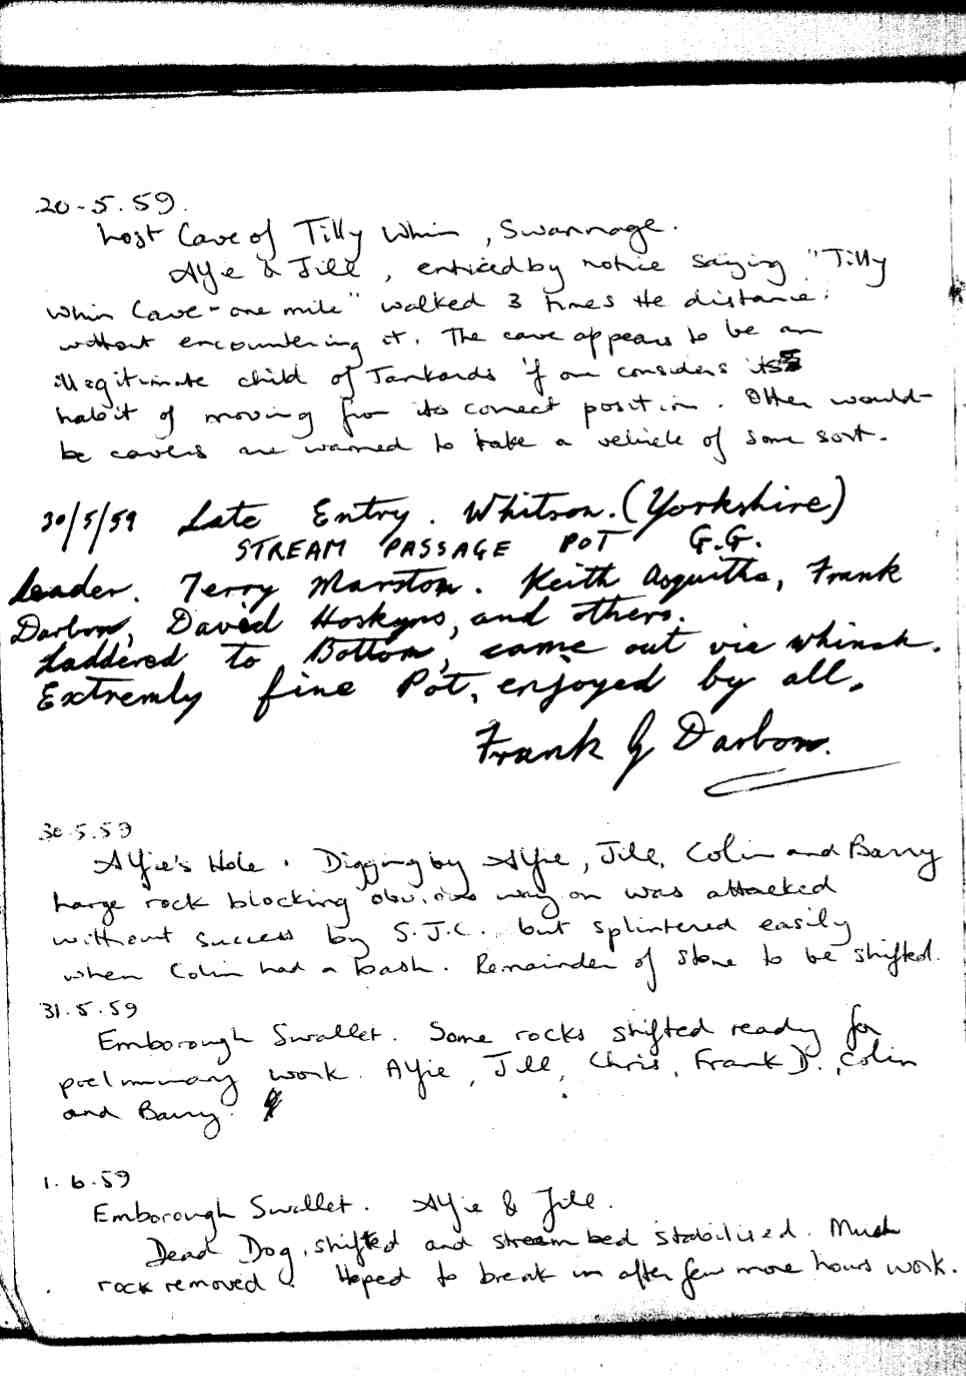 20-5.59.
Lost Cave of Tilly Whim, Swannage.
Alfie & Jill, enticed by notice saying "Tilly
Whim Cave - one mile" walked 3 times the distance
without encountering it. The cave appears to be an
illegitimate child of Tankards if one considers its
habit of moving from its correct position. Other would-
be cavers are warned to take a vehicle of some sort.
30/5/59 Late Entry. Whitson. (Yorkshire)
STREAM PASSAGE POT G.G.
Leader. Terry Marston. Keith Asquithe, Frank
Darbon, David Hoskyns, and others.
Laddered to Bottom, came out via
Extremly fine Pot, enjoyed by all.
Frank G Darbon.
30.5.59
Alfie's Hole. Digging by Alfie, Jill, Colin and Barry
Large rock blocking obvious way on was attacked
without success by S.J.C. but splintered easily
when Colin had a bash. Remainder of stone to be shifted.
31.5.59
Emborough Swallet. Some rocks shifted ready for
preliminary work. Alfie, Jill, Chris, Frank D., Colin
and Barry.
1.6.59
Emborough Swallet. Alfie & Jill.
Dead Dog, shifted and stream bed stabilised. Much
rock removed. Hoped to break in after few more hours work.